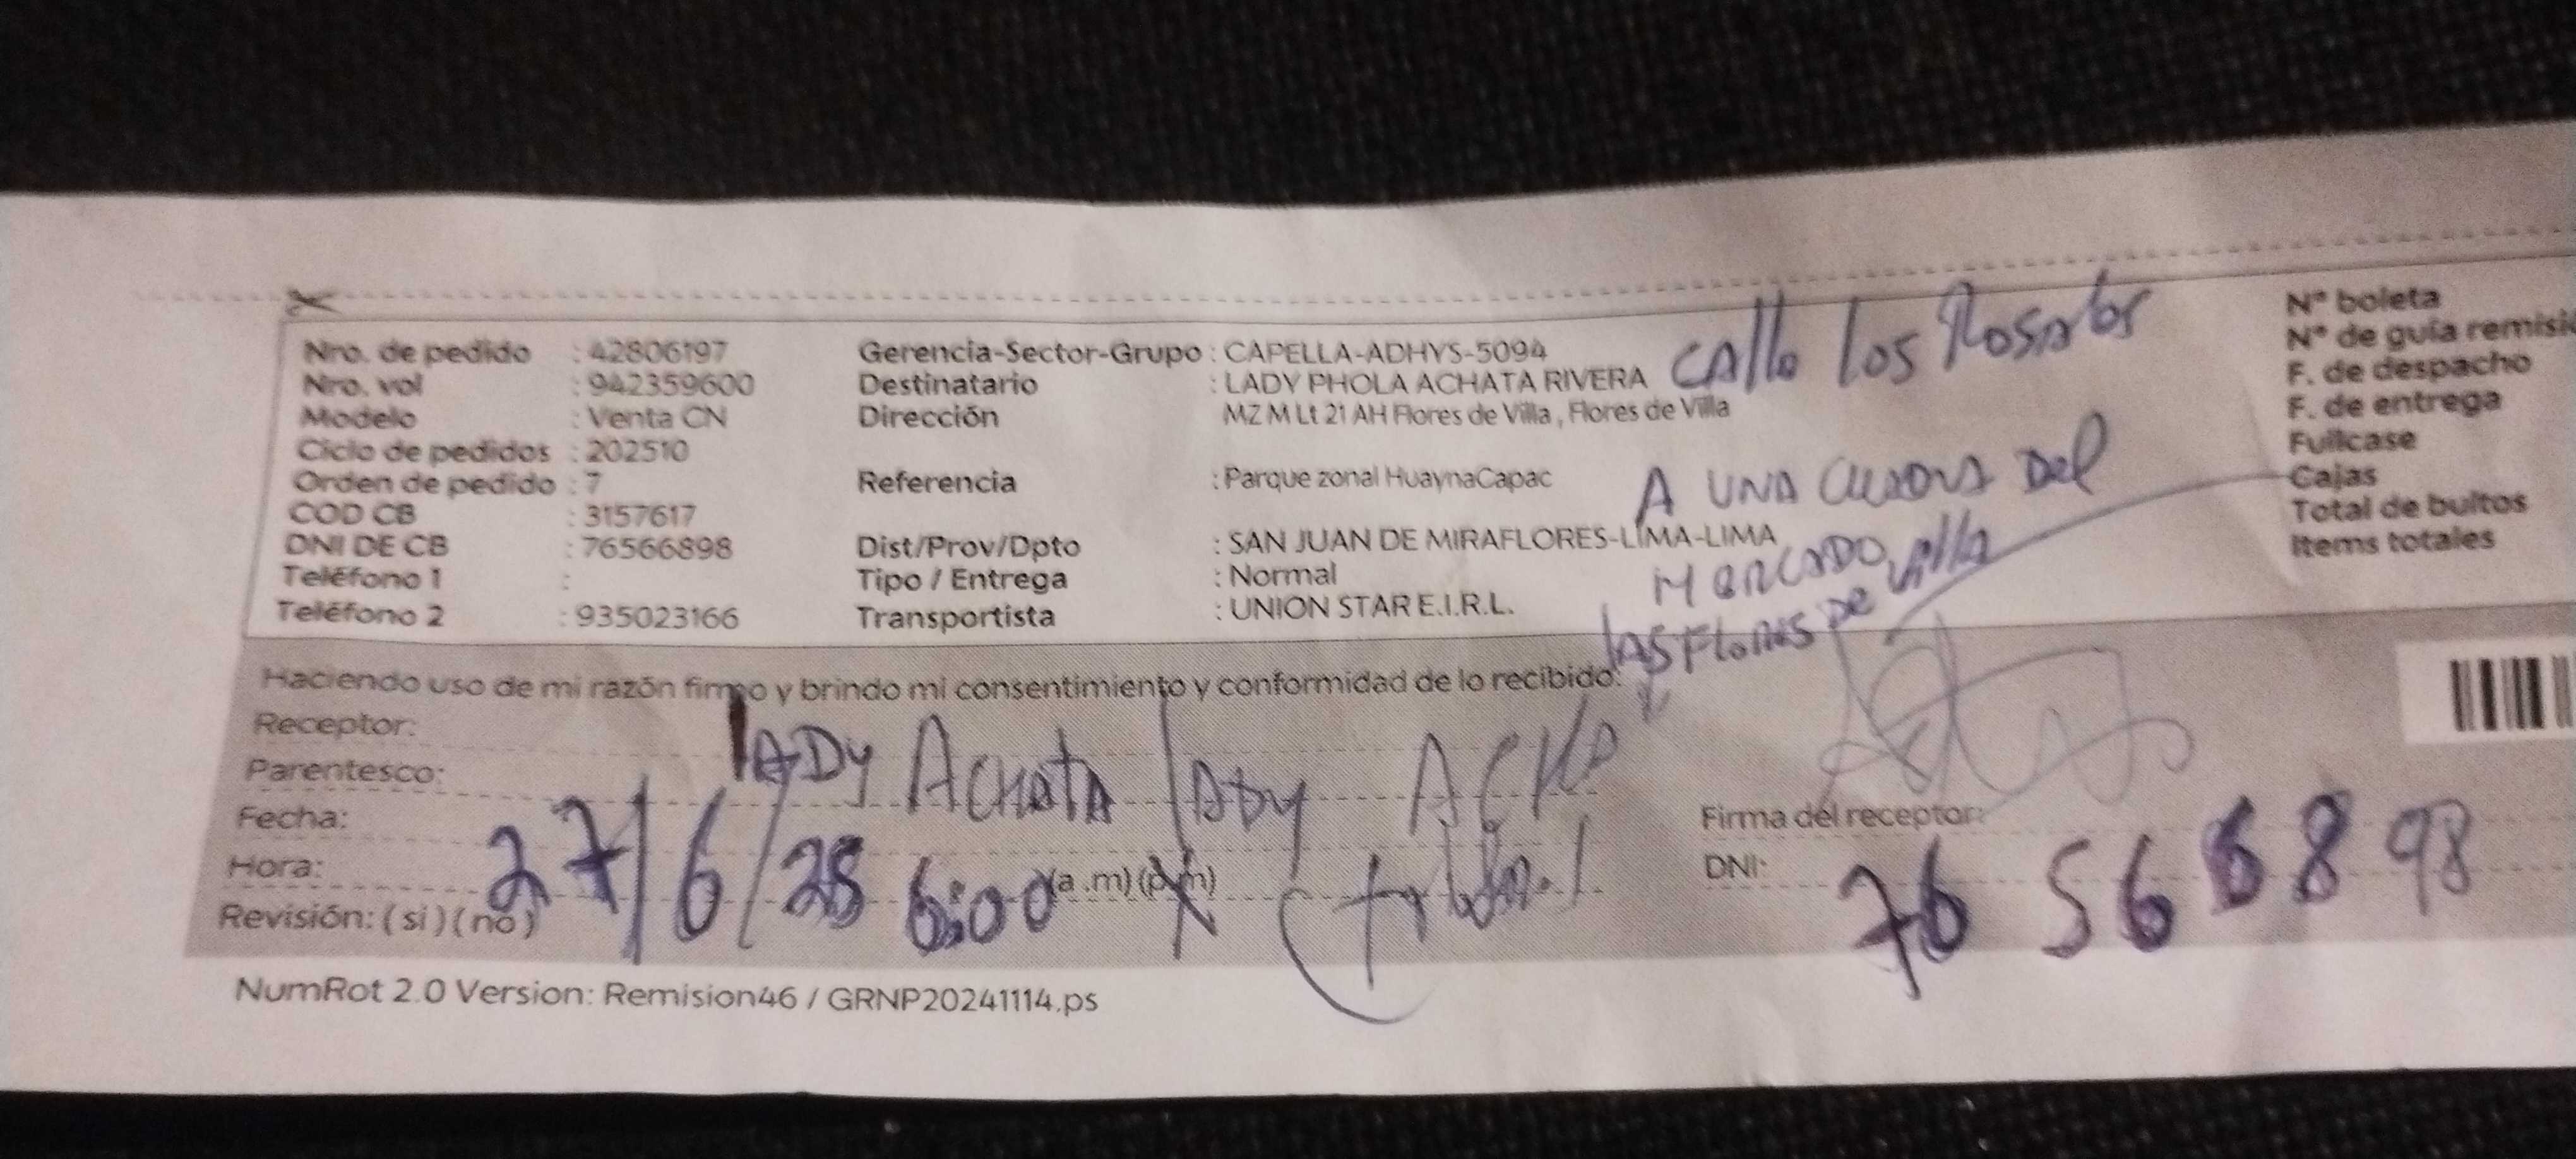 Nro. de pedido : 42806197
Nro. vol : 942359600
Modelo : Venta CN
Ciclo de pedidos : 202510
Orden de pedido : 7
COD CB : 3157617
DNI DE CB : 76566898
Teléfono 1 :
Teléfono 2 : 935023166
Gerencia-Sector-Grupo : CAPELLA-ADHYS-5094
Destinatario : LADY PHOLA ACHATA RIVERA
Dirección MZ M Lt 21 AH Flores de Villa , Flores de Villa
Referencia : Parque zonal HuaynaCapac
Dist/Prov/Dpto : SAN JUAN DE MIRAFLORES-LIMA-LIMA
Tipo / Entrega : Normal
Transportista : UNION STAR E.I.R.L.
Calle los Rosales
A UNA cuadra Del
MERCADO
las Flores De villa
N° boleta
N° de guía remisi
F. de despacho
F. de entrega
Fullcase
Cajas
Total de bultos
Items totales
Haciendo uso de mi razón firmo y brindo mi consentimiento y conformidad de lo recibido:
Receptor:
Parentesco:
lADy AcHatA lADy
Fecha:
Hora:
27/6/25 6:00 (a .m) (p.m)
Revisión: ( si ) ( no )
Firma del receptor:
DNI: 76 56 68 98
NumRot 2.0 Version: Remision46 / GRNP20241114.ps